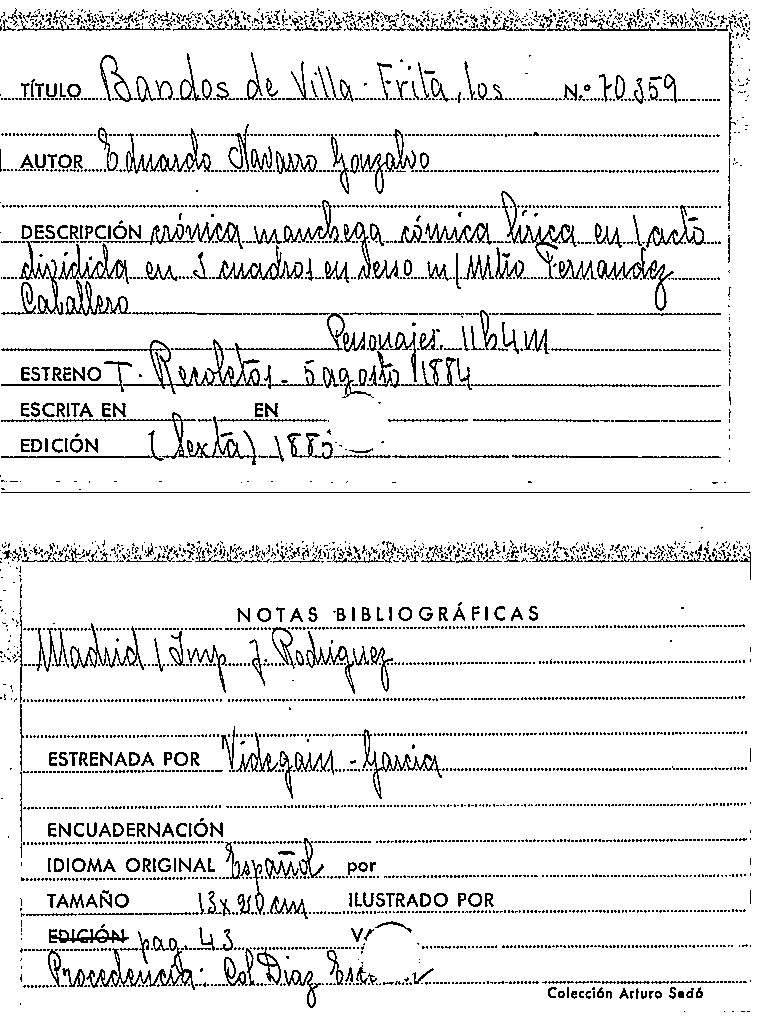 TÍTULO Bandos de Villa-Frita, los N.º 70359
AUTOR Eduardo Navarro Gonzalvo
DESCRIPCIÓN crónica manchega cómica lírica en 1 acto
dividida en 3 cuadros en verso m/ Mtro Fernandez
Caballero
Personajes: 11 h 4 m
ESTRENO T. Recoletos - 5 agosto 1884
ESCRITA EN EN
EDICIÓN (Sexta) 1885
NOTAS BIBLIOGRÁFICAS
Madrid / Imp J. Rodriguez
ESTRENADA POR Videgain - Garcia
ENCUADERNACIÓN
IDIOMA ORIGINAL Español por
TAMAÑO 13 x 20 cm ILUSTRADO POR
EDICIÓN pag. 43
Procedencia: Col. Diaz
Colección Arturo Sedó